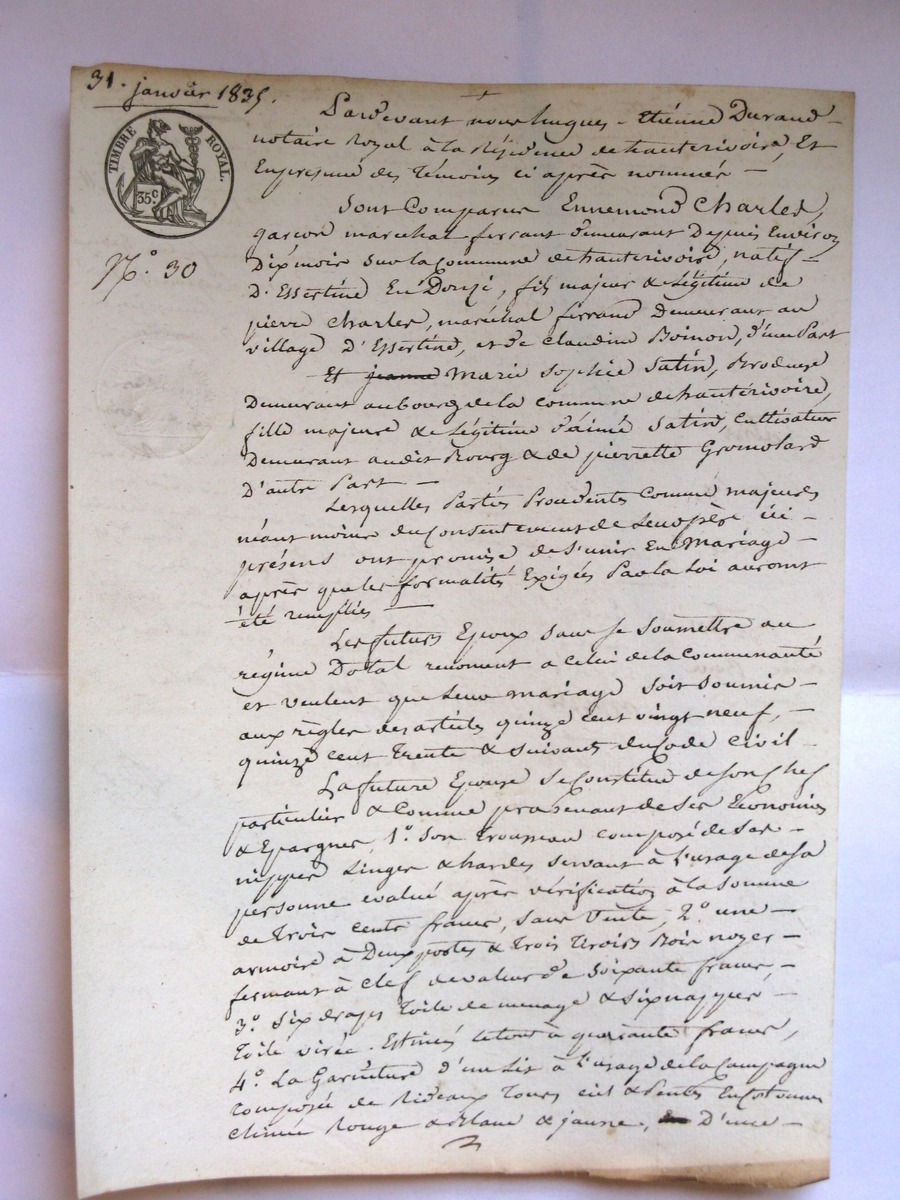 31. janvier 1835.
TIMBRE ROYAL.
35c
N.° 30
Pardevant nous hugues - Etiénne Durand -
notaire Royal à la Résidence de hauterivoire, Et
En présence des Témoins ci après nommés -
Sont Comparus Ennemond Charles,
garçon maréchal ferrant demeurant Depuis Environ
Dix mois sur la Commune de hauterivoire, natif -
D'Essertine En Donzi, fils majeur & Légitime de
pierre Charles, maréchal ferrand Demeurant au
village D'Essertine, et de Claudine Boinon, d'une Part
Et jeanne Marie Sophie Satin, Brodeuse
Demeurant au bourg de la commune de hauterivoire,
fille majeure & Légitime d'aimé Satin, Cultivateur
Demeurant audit Bourg & de pierrette Gromolard
D'autre Part -
Lesquelles Parties Procédentes Comme majeures
néant moins du Consentement de Leurs père ici -
présens ont promise de s'unir En Mariage -
après que les formalités Exigées Par la Loi auront
été remplies -
Les futurs Epoux sans se soumettre au
régime Dotal renoncent à celui de la Communauté
et veulent que Leur mariage soit soumis -
aux règles des articles quinze cent vingt neuf, -
quinze cent Trente & suivants du Code Civil -
La future Epouse se Constitue de son Chef
particulier & Comme provenant de ses Economies
& Epargnes, 1°. Son Trousseau composé de ses -
nippes Linges & hardes servant à L'usage de sa
personne evalué après vérification à la somme
de Trois cents francs, sans vente, 2°. une -
armoire à Deux portes & Trois Tiroirs Bois noyer -
fermant à clef de valeur de soixante francs, -
3°. Six draps Toile de menage & six nappes -
Toile virée. Estimés le tout à quarante francs,
4°. La Garniture d'un Lit à L'usage de la Campagne
Composée de Rideaux Tours ciel & Pentes En Cotonne
Chinée Rouge & Blanc & jaune, D'une -